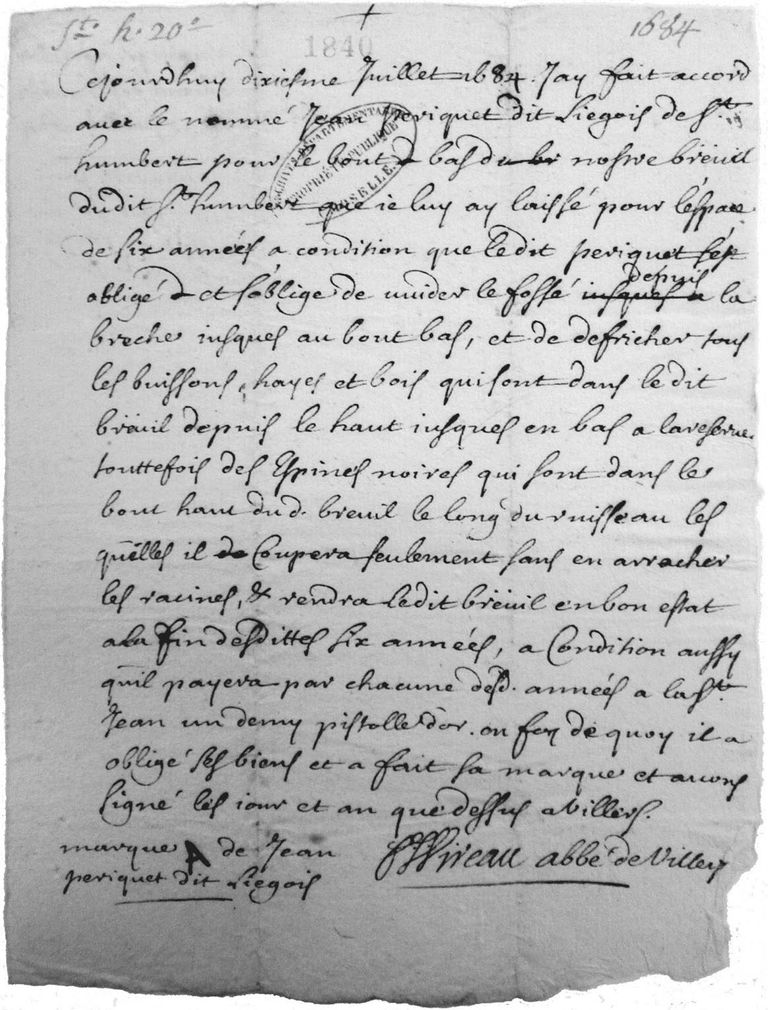 St. h. 20e
1684
1840
Cejourdhuy dixiesme Juillet 1684 Jay fait accord
avec le nommé Jean periquet dit Liegois de St.
humbert pour le bout bas du nostre breuil
dudit St. humbert que ie luy ay laissé pour lespace
de six années a condition que ledit periquet sest
obligé et soblige de vuider le fossé iusques a depuis la
breche iusques au bout bas, et de defricher tous
les buissons, hayes et bois qui sont dans le dit
breuil depuis le haut iusques en bas a la reserve
touttefois des Espines noires qui sont dans le
bout haut dud. breuil le long du ruisseau les
quelles il de Coupera seulement sans en arracher
les racines, & rendra ledit breuil en bon estat
a la fin desdittes six années, a Condition aussy
quil payera par chacune desd. années a la St.
Jean un demy pistolle dor. en foy de quoy il a
obligé ses biens et a fait sa marque et avons
signé les iour et an que dessus a Villers.
marque A de Jean
periquet dit Liegois
abbé de Villers
ARCHIVES DEPARTEMENTALES
PROPRIÉTÉ PUBLIQUE
MOSELLE